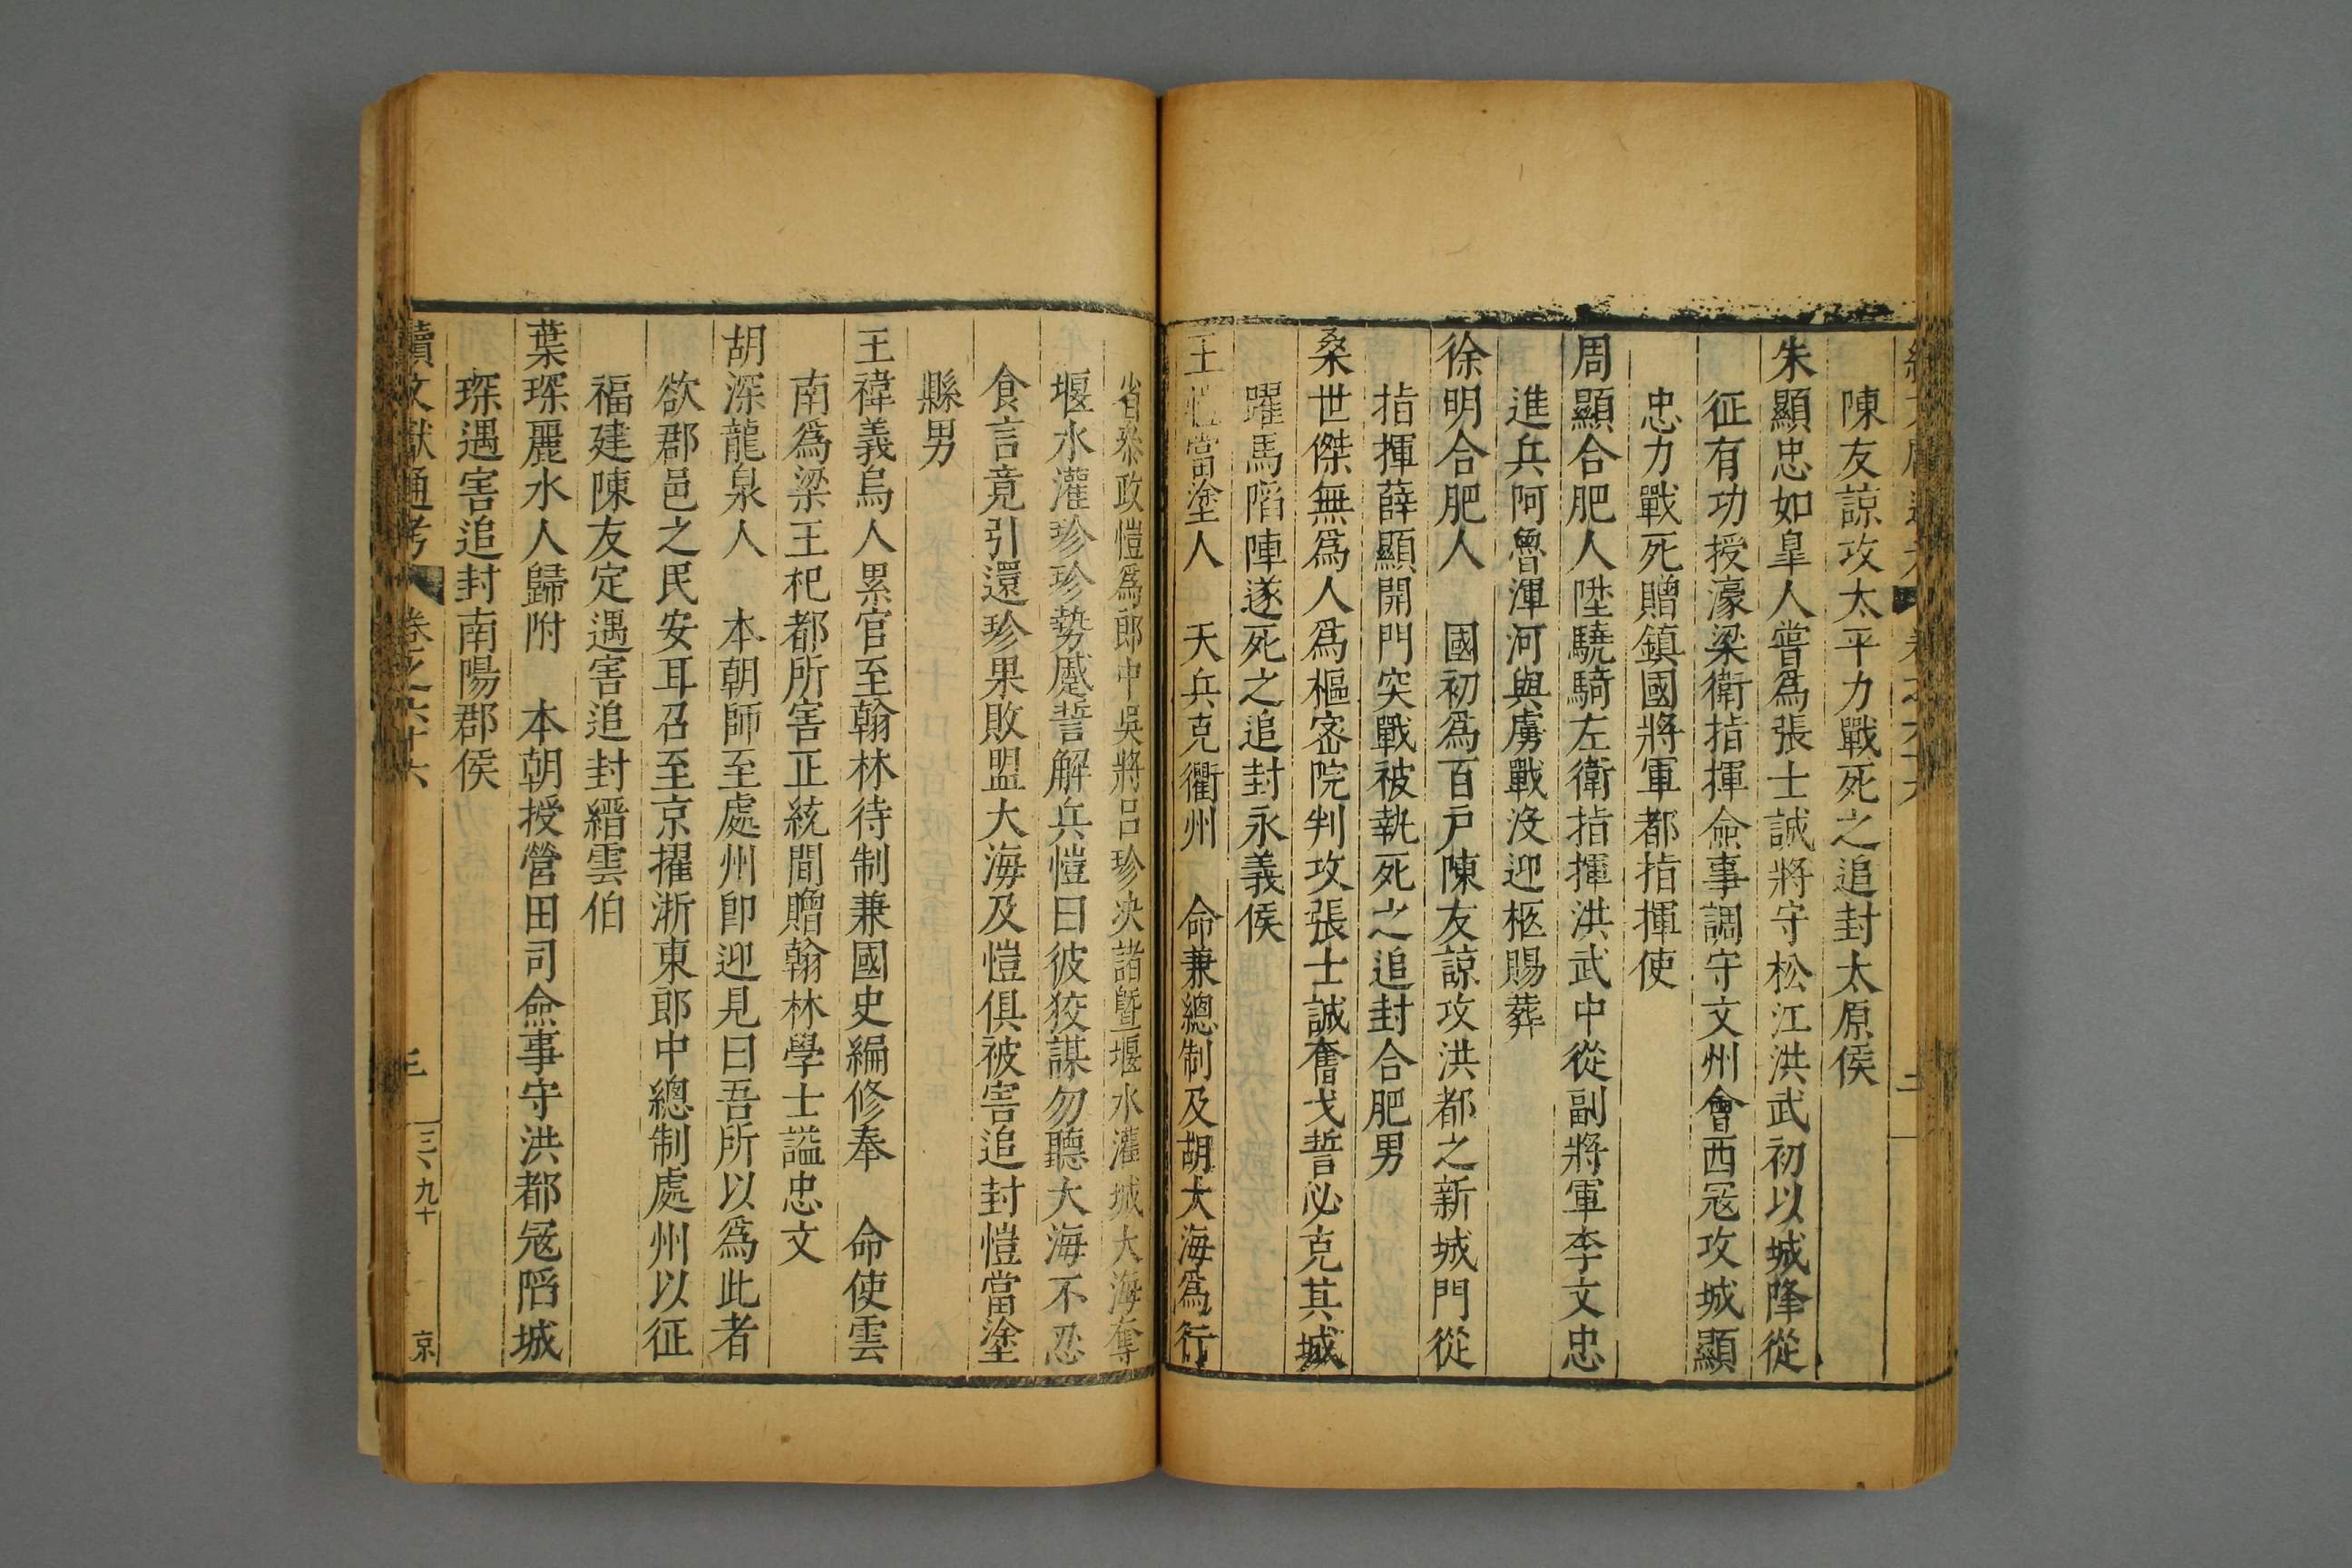 陳友諒攻太平力戰死之追封太原侯
朱顯忠如臯人嘗爲張士誠將守松江洪武初以城降從
征有功授濠梁衛指揮僉事調守文州會西冦攻城顯
忠力戰死贈鎮國將軍都指揮使
周顯合肥人陞驍騎左衛指揮洪武中從副將軍李文忠
進兵阿魯渾河與虜戰沒迎柩賜葬
徐明合肥人 國初爲百戶陳友諒攻洪都之新城門從
指揮薛顯開門突戰被執死之追封合肥男
桑世傑無爲人爲樞密院判攻張士誠奮戈誓必克其城
躍馬陷陣遂死之追封永義侯
王愷當塗人 天兵克衢州 命兼總制及胡大海爲行
省叅政愷爲郎中吳將呂珍决諸曁堰水灌城大海奪
堰水灌珍珍勢蹙誓解兵愷曰彼狡謀勿聽大海不忍
食言竟引還珍果敗盟大海及愷俱被害追封愷當塗
縣男
王禕義烏人累官至翰林待制兼國史編修奉 命使雲
南爲梁王杷都所害正統間贈翰林學士謚忠文
胡深龍泉人 本朝師至處州卽迎見曰吾所以爲此者
欲郡邑之民安耳召至京擢浙東郎中總制處州以征
福建陳友定遇害追封縉雲伯
葉琛麗水人歸附 本朝授營田司僉事守洪都冦陷城
琛遇害追封南陽郡侯
續文獻通考 卷之六十六 三 三、九十 京